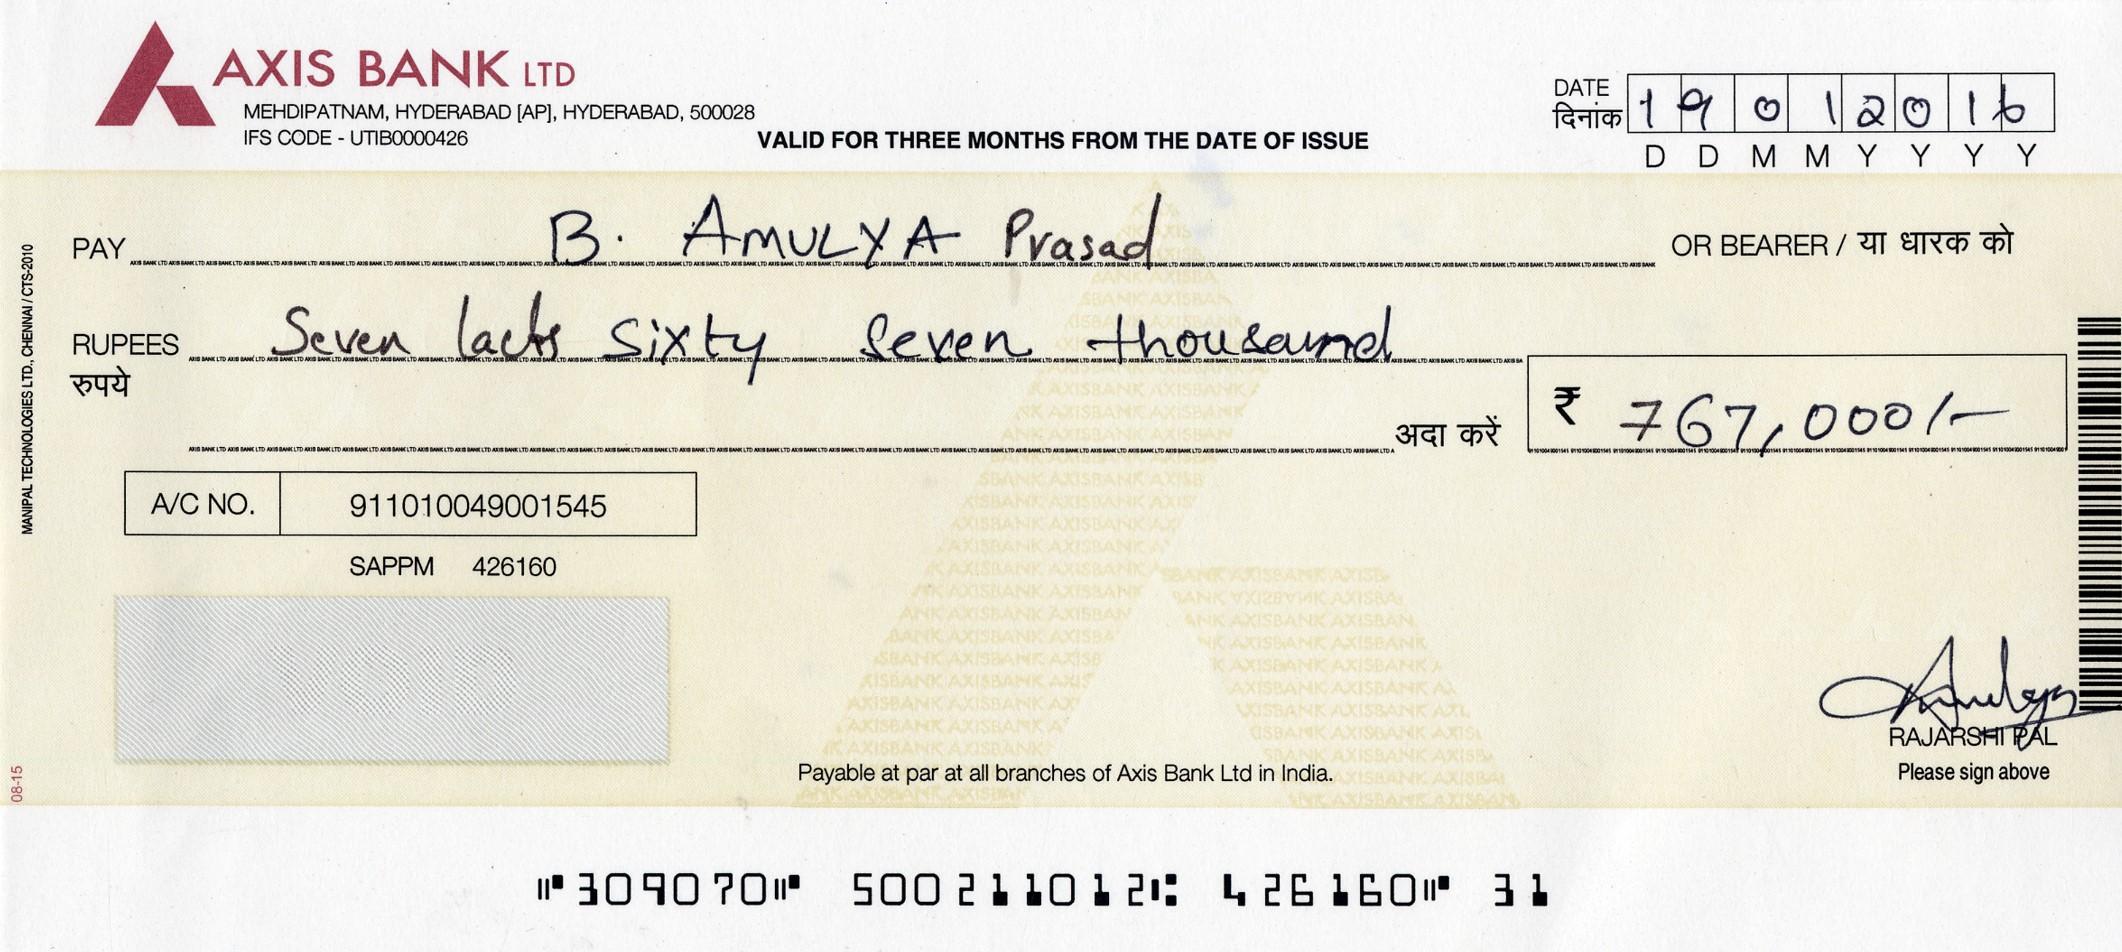 AXIS BANK LTD
MEHDIPATNAM, HYDERABAD [AP], HYDERABAD, 500028
IFS CODE - UTIB0000426
VALID FOR THREE MONTHS FROM THE DATE OF ISSUE
DATE
दिनांक
1 9 0 1 2 0 1 6
D D M M Y Y Y Y
PAY B. AMULYA Prasad OR BEARER / या धारक को
RUPEES Seven lacks sixty seven thousand
रुपये
अदा करें ₹ 767,000/-
A/C NO. 911010049001545
SAPPM 426160
VOID
RAJARSHI PAL
Please sign above
Payable at par at all branches of Axis Bank Ltd in India.
MANIPAL TECHNOLOGIES LTD., CHENNAI / CTS-2010
08-15
⑈309070⑈ 500211012⑆ 426160⑈ 31